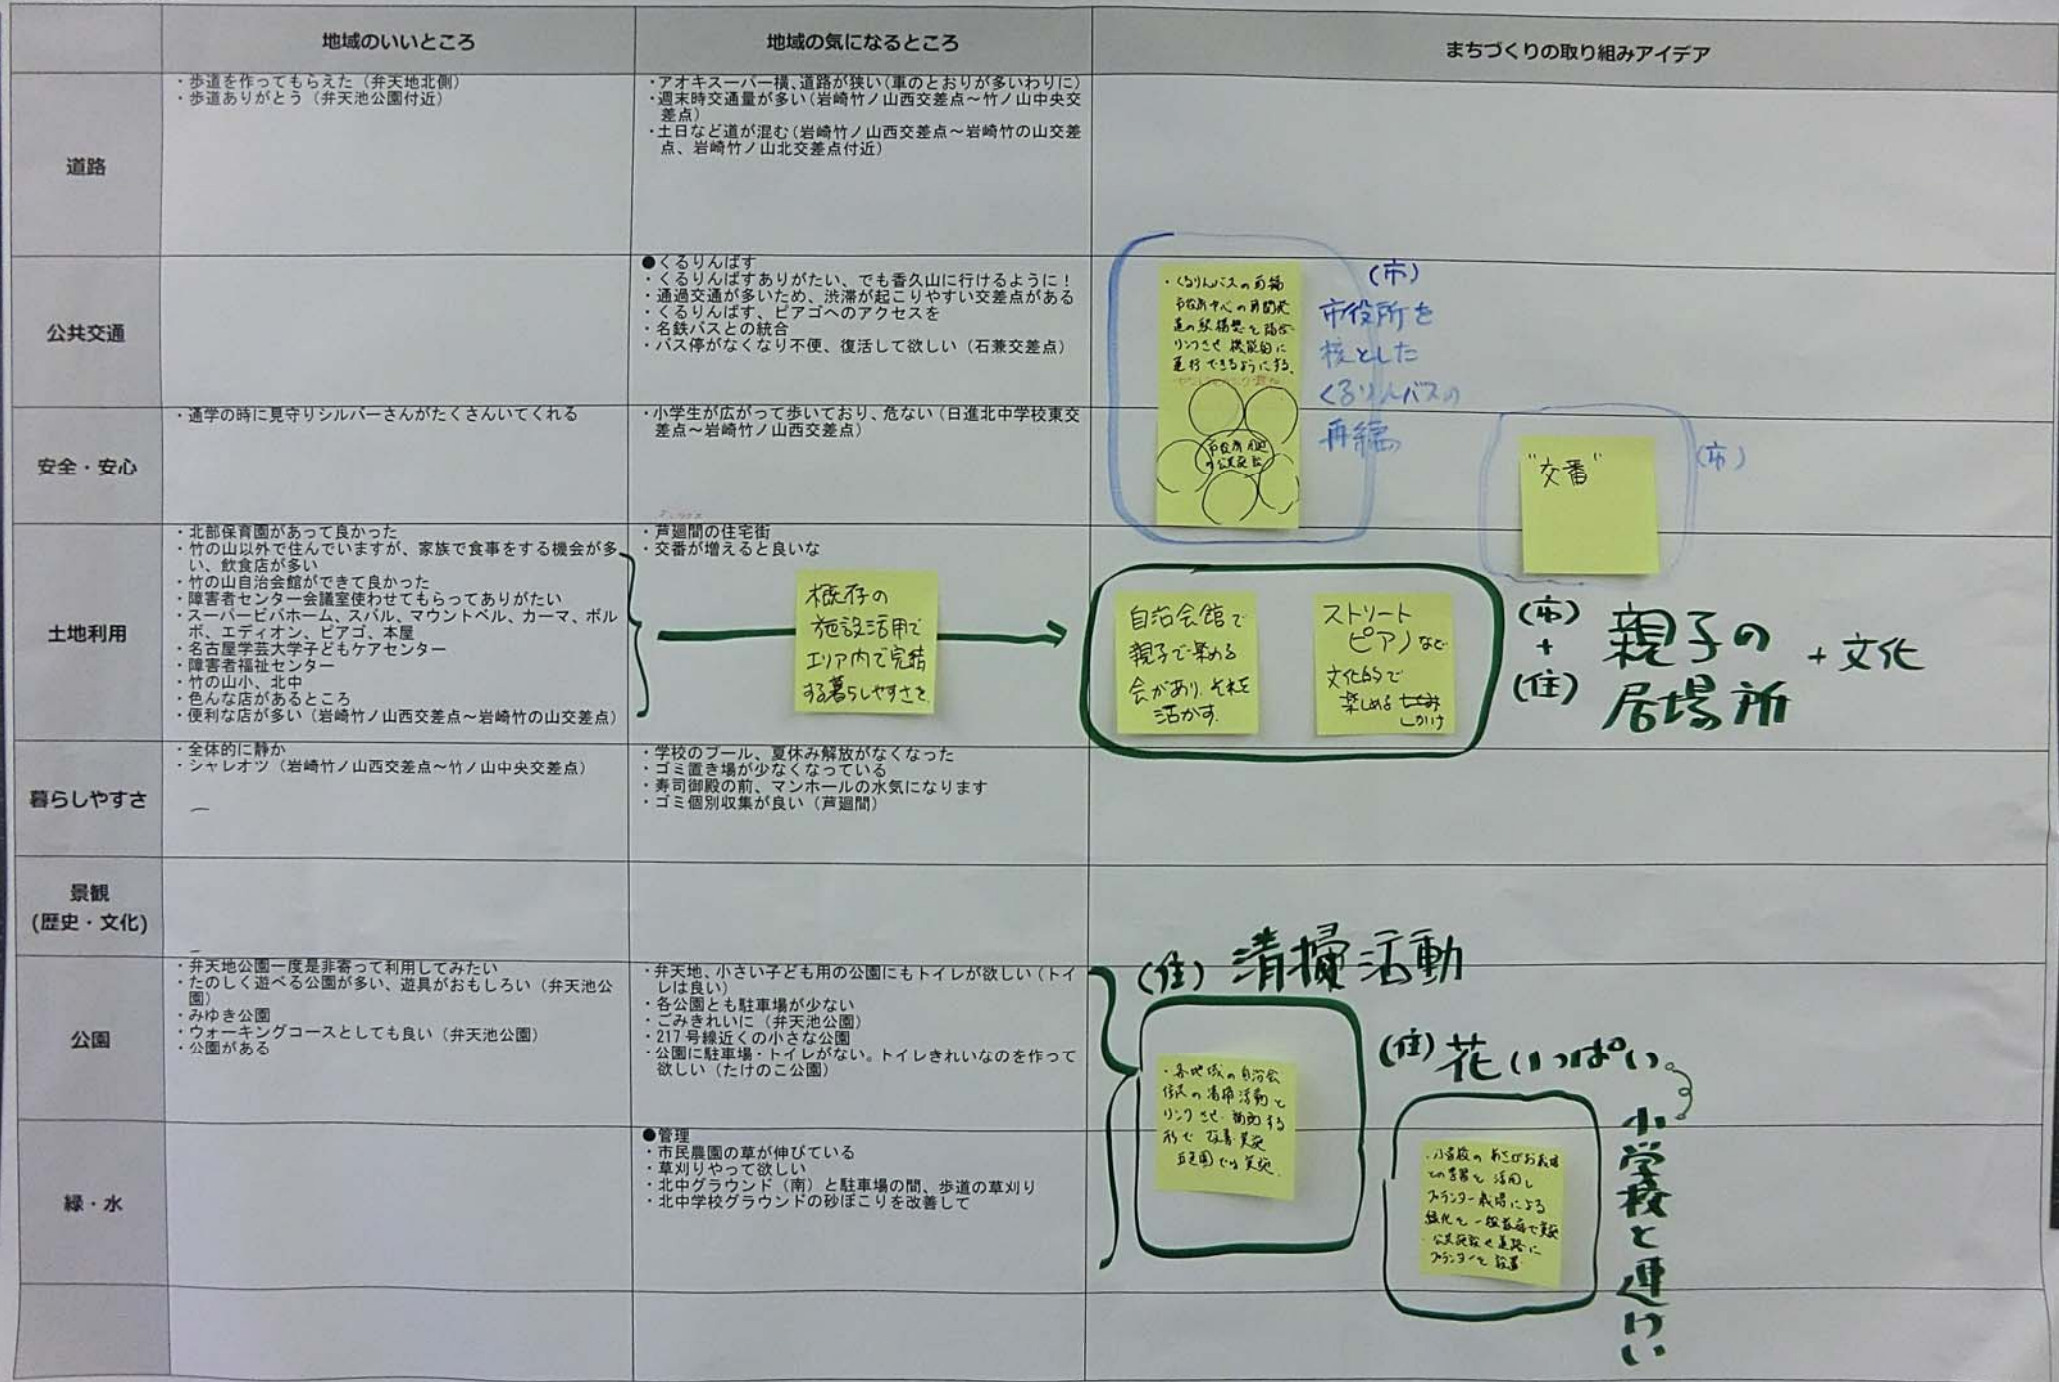 地域のいいところ
地域の気になるところ
まちづくりの取り組みアイデア
道路
・歩道を作ってもらえた（弁天地北側）
・歩道ありがとう（弁天池公園付近）
・アオキスーパー横、道路が狭い（車のとおりが多いわりに）
・週末時交通量が多い（岩崎竹ノ山西交差点～竹ノ山中央交
差点）
・土日など道が混む（岩崎竹ノ山西交差点～岩崎竹の山交差
点、岩崎竹ノ山北交差点付近）
公共交通
●くるりんばす
・くるりんばすありがたい、でも香久山に行けるように！
・通過交通が多いため、渋滞が起こりやすい交差点がある
・くるりんばす、ピアゴへのアクセスを
・名鉄バスとの統合
・バス停がなくなり不便、復活して欲しい（石兼交差点）
・くるりんバスの再編
市役所中心の再開発
道の駅構想と
リンクさせ機能的に
運行できるようにする。
市役所周辺
の公共施設
(市)
市役所を
核とした
くるりんバスの
再編
安全・安心
・通学の時に見守りシルバーさんがたくさんいてくれる
・小学生が広がって歩いており、危ない（日進北中学校東交
差点～岩崎竹ノ山西交差点）
"交番"
(市)
土地利用
・北部保育園があって良かった
・竹の山以外で住んでいますが、家族で食事をする機会が多
い、飲食店が多い
・竹の山自治会館ができて良かった
・障害者センター会議室使わせてもらってありがたい
・スーパービバホーム、スバル、マウントベル、カーマ、ボル
ボ、エディオン、ピアゴ、本屋
・名古屋学芸大学子どもケアセンター
・障害者福祉センター
・竹の山小、北中
・色んな店があるところ
・便利な店が多い（岩崎竹ノ山西交差点～岩崎竹の山交差点）
・芦廻間の住宅街
・交番が増えると良いな
概存の
施設活用で
エリア内で完結
する暮らしやすさを
自治会館で
親子で集める
会があり、それを
活かす。
ストリート
ピアノなど
文化的で
楽しめる
しかけ
(市)
+
(住)
親子の
居場所
+文化
暮らしやすさ
・全体的に静か
・シャレオツ（岩崎竹ノ山西交差点～竹ノ山中央交差点）
・学校のプール、夏休み解放がなくなった
・ゴミ置き場が少なくなっている
・寿司御殿の前、マンホールの水気になります
・ゴミ個別収集が良い（芦廻間）
景観
(歴史・文化)
公園
・弁天地公園一度是非寄って利用してみたい
・たのしく遊べる公園が多い、遊具がおもしろい（弁天池公
園）
・みゆき公園
・ウォーキングコースとしても良い（弁天池公園）
・公園がある
・弁天地、小さい子ども用の公園にもトイレが欲しい（トイ
レは良い）
・各公園とも駐車場が少ない
・ごみきれいに（弁天池公園）
・217号線近くの小さな公園
・公園に駐車場・トイレがない。トイレきれいなのを作って
欲しい（たけのこ公園）
(住) 清掃活動
・各地域の自治会
住民の清掃活動と
リンクさせ
(住) 花いっぱい
小学校と連けい
緑・水
●管理
・市民農園の草が伸びている
・草刈りやって欲しい
・北中グラウンド（南）と駐車場の間、歩道の草刈り
・北中学校グラウンドの砂ぼこりを改善して
・小学校のあさがお栽培
活用し
プランター栽培による
緑化を一般家庭で実施
公共施設や道路に
プランターを設置